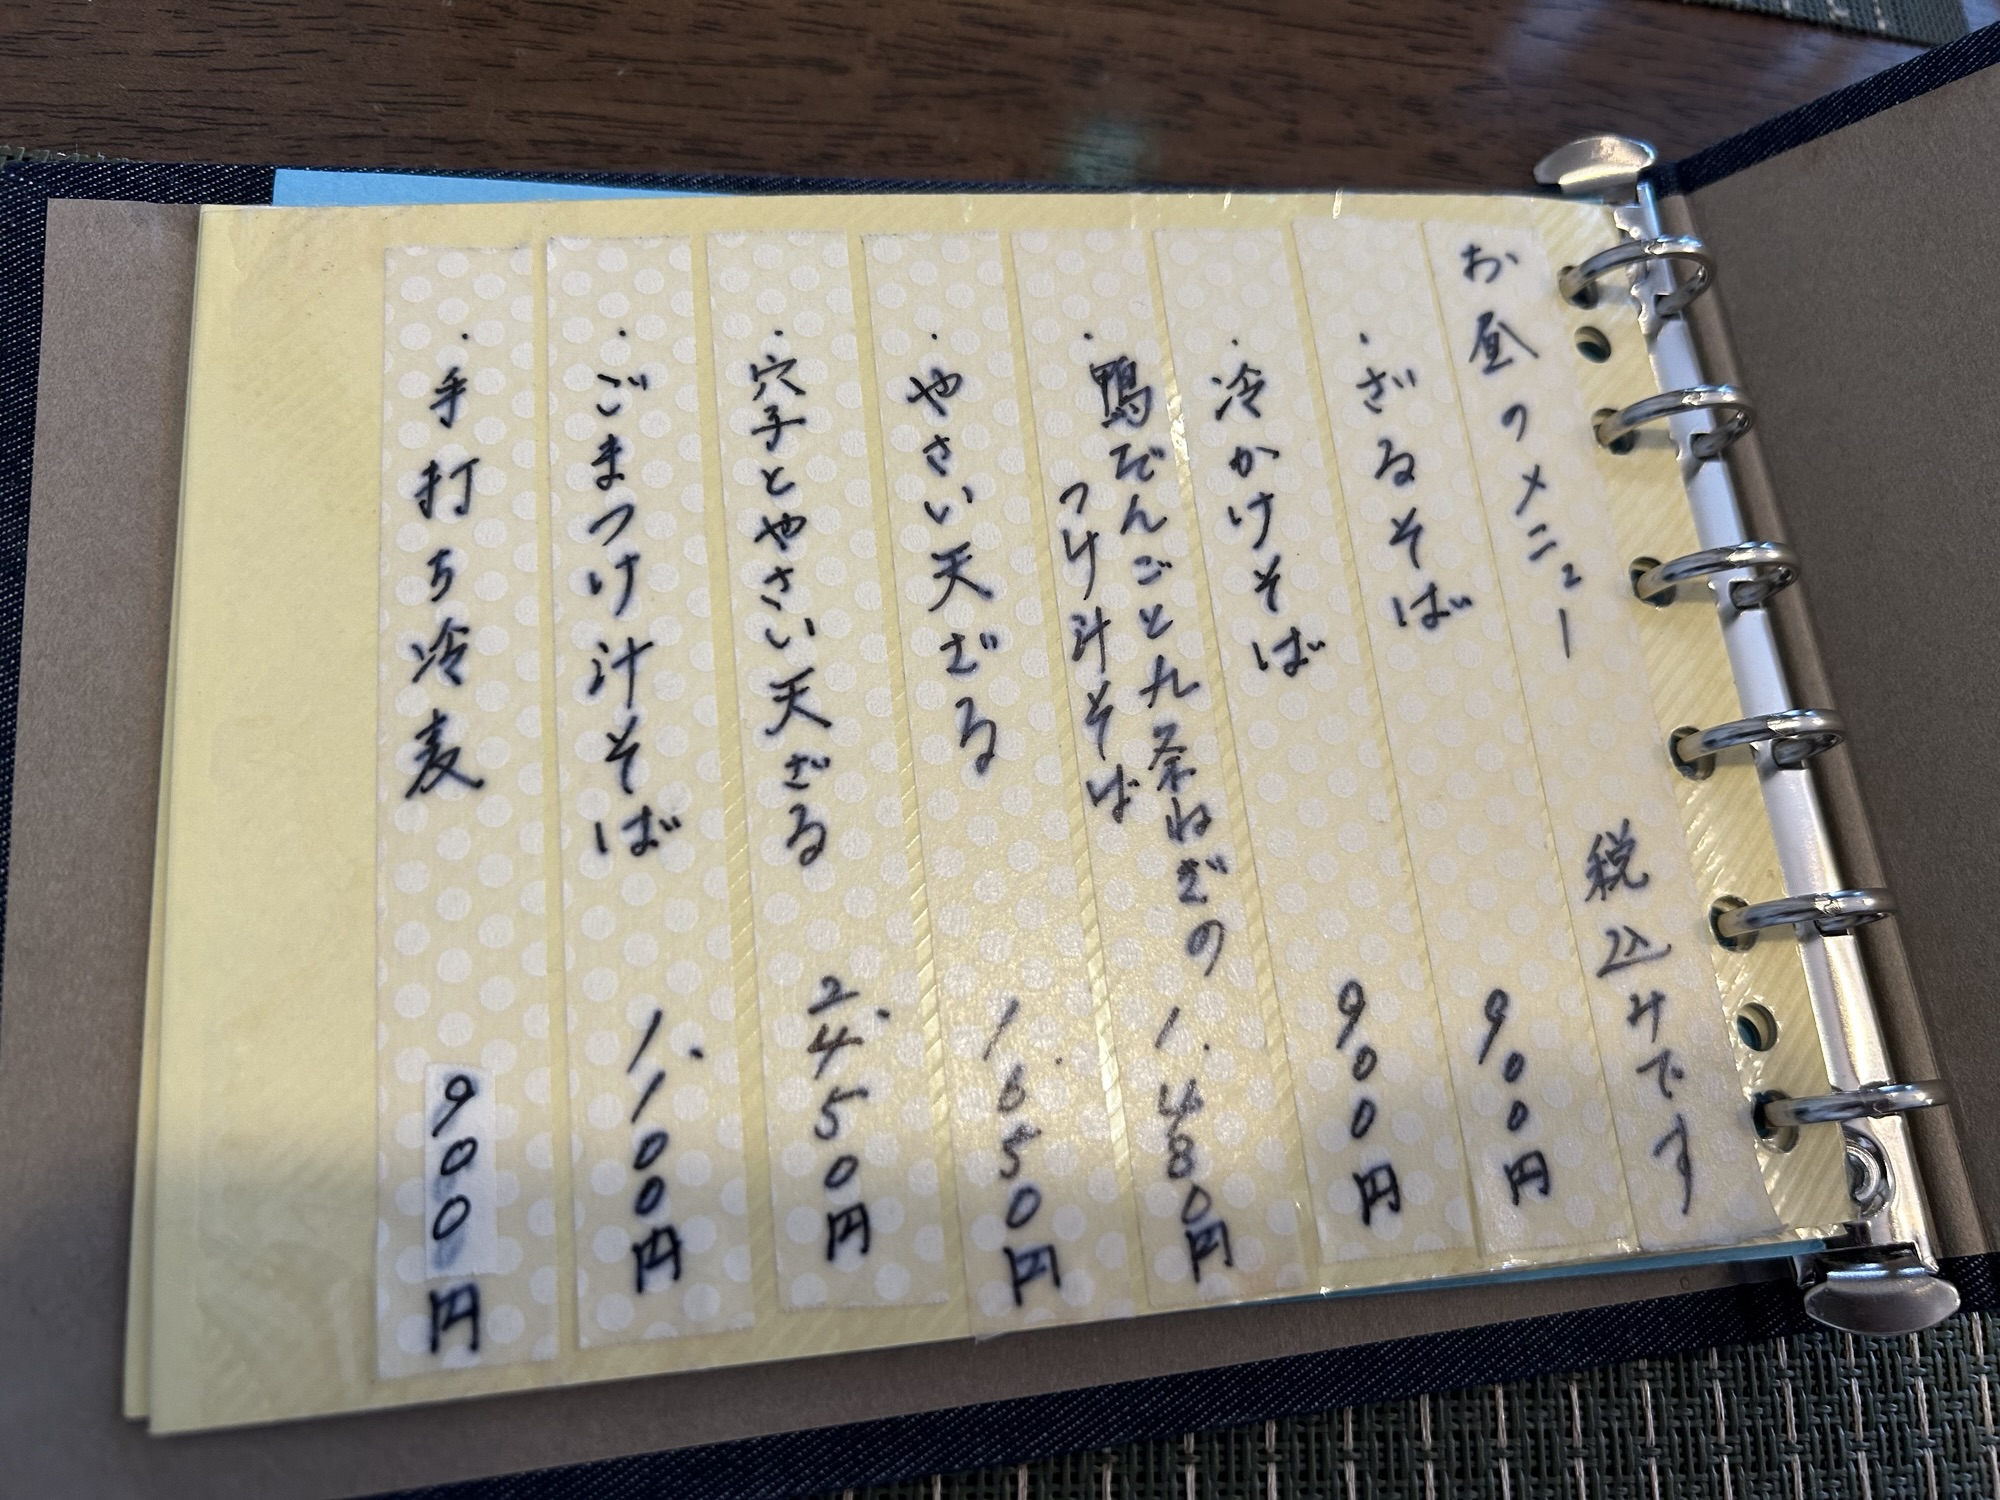 お昼のメニュー 税込みです
・ざるそば 900円
・冷かけそば 900円
・鴨だんごと九条ねぎの
つけ汁そば 1.480円
・やさい天ざる 1.650円
・穴子とやさい天ざる 2.450円
・ごまつけ汁そば 1.100円
・手打ち冷麦 900円